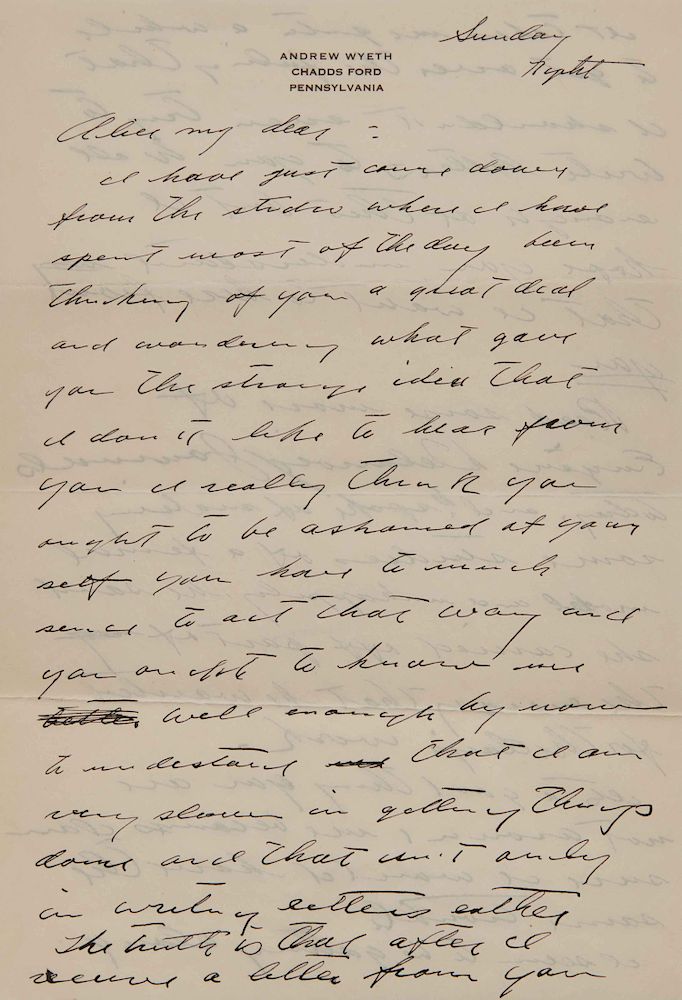 Sunday
Night
ANDREW WYETH
CHADDS FORD
PENNSYLVANIA
Alice my dear :
I have just come down
from the studio where I have
spent most of the day been
thinking of you a great deal
and wondering what gave
you the strange idea that
I don't like to hear from
you I really think you
ought to be ashamed of your
self you have to much
sence to act that way and
you ought to know me
better well enough by now
to understand that I am
very slow in getting things
done and that isn't only
in writing letters eather
The truth is that after I
receive a letter from you